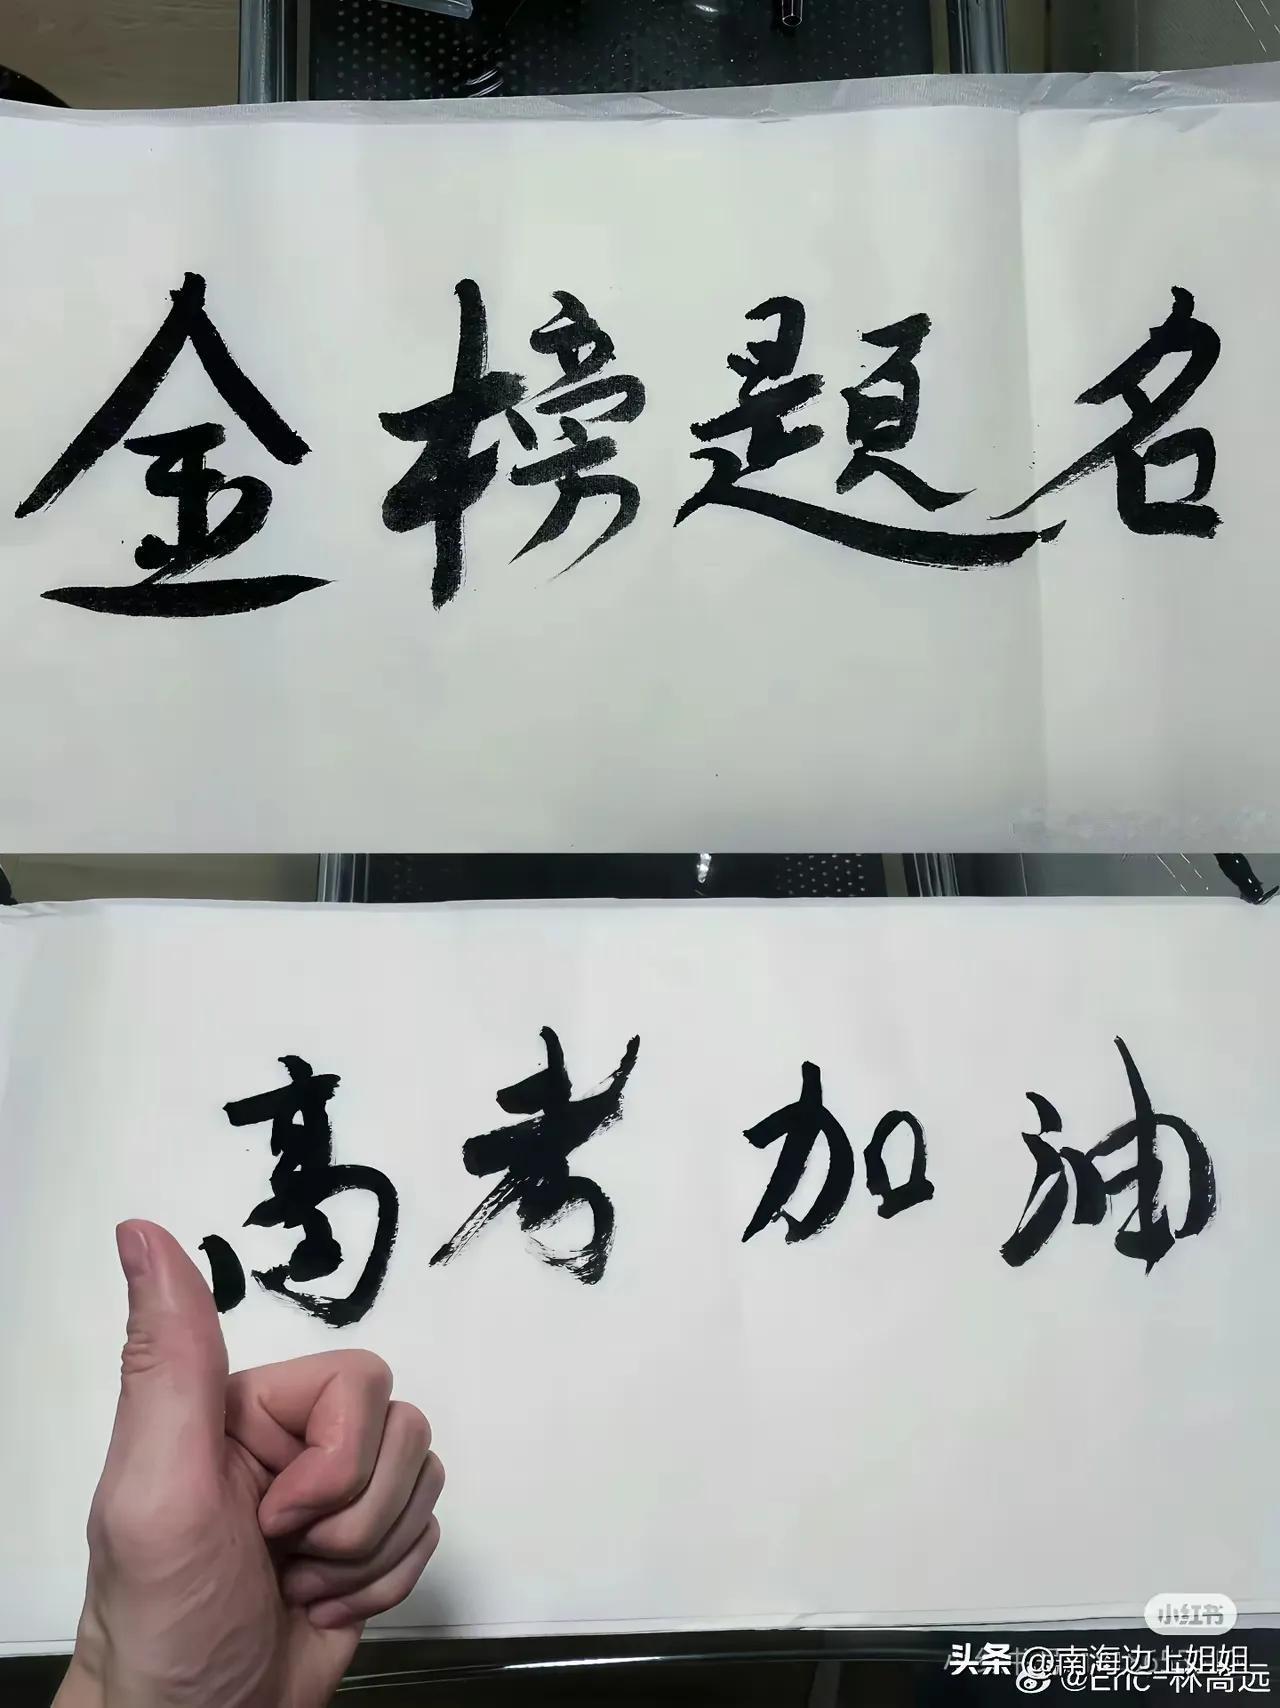 金榜題名
高考加油
小红书
头条 @南海边上姐姐
@Eric-林高远